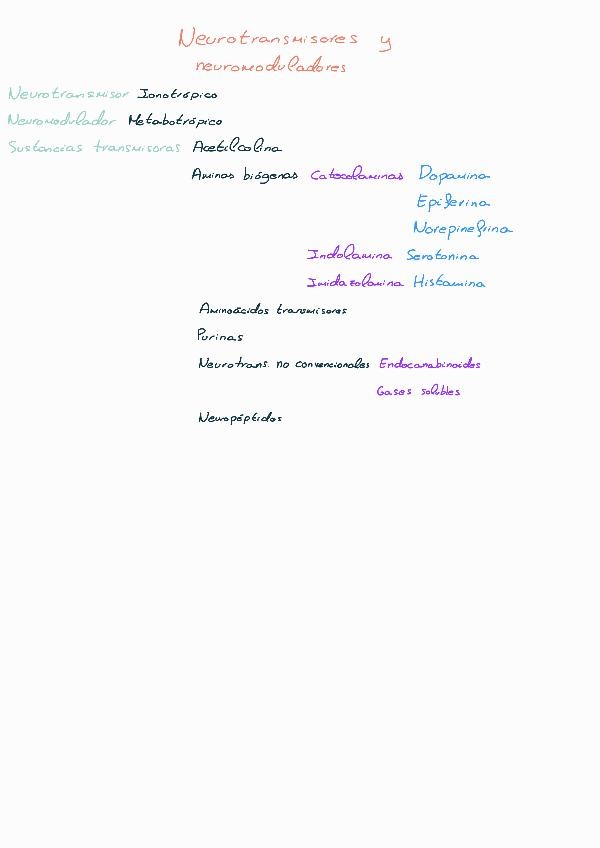 Neurotransmisores y
neuromoduladores
Neurotransmisor Ionotrópico
Neuromodulador Metabotrópico
Sustancias transmisoras Acetilcolina
Aminas biógenas Catecolaminas Dopamina
Epiferina
Norepinefrina
Indolamina Serotonina
Imidazolamina Histamina
Aminoácidos transmisores
Purinas
Neurotrans. no convencionales Endocanabinoides
Gases solubles
Neuropéptidos